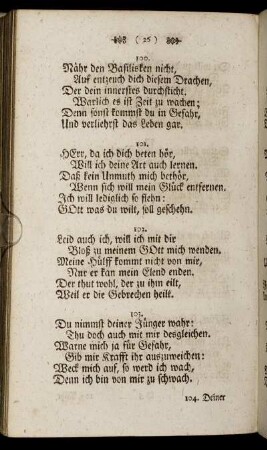 ( 26 )
100.
Nähr den Basilisken nicht,
Auf entzeuch dich diesem Drachen,
Der dein innerstes durchsticht.
Warlich es ist Zeit zu wachen;
Denn sonst kommst du in Gefahr,
Und verliehrst das Leben gar.
101.
HErr, da ich dich beten hör,
Will ich deine Art auch lernen.
Daß kein Unmuth mich bethör,
Wenn sich will mein Glück entfernen.
Ich will lediglich so flehn:
GOtt was du wilt, soll geschehn.
102.
Leid auch ich, will ich mit dir
Bloß zu meinem GOtt mich wenden.
Meine Hülff kommt nicht von mir,
Nur er kan mein Elend enden.
Der thut wohl, der zu ihm eilt,
Weil er die Gebrechen heilt.
103.
Du nimmst deiner Jünger wahr:
Thu doch auch mit mir desgleichen.
Warne mich ja für Gefahr,
Gib mir Krafft ihr auszuweichen:
Weck mich auf, so werd ich wach,
Denn ich bin von mir zu schwach.
104. Deiner